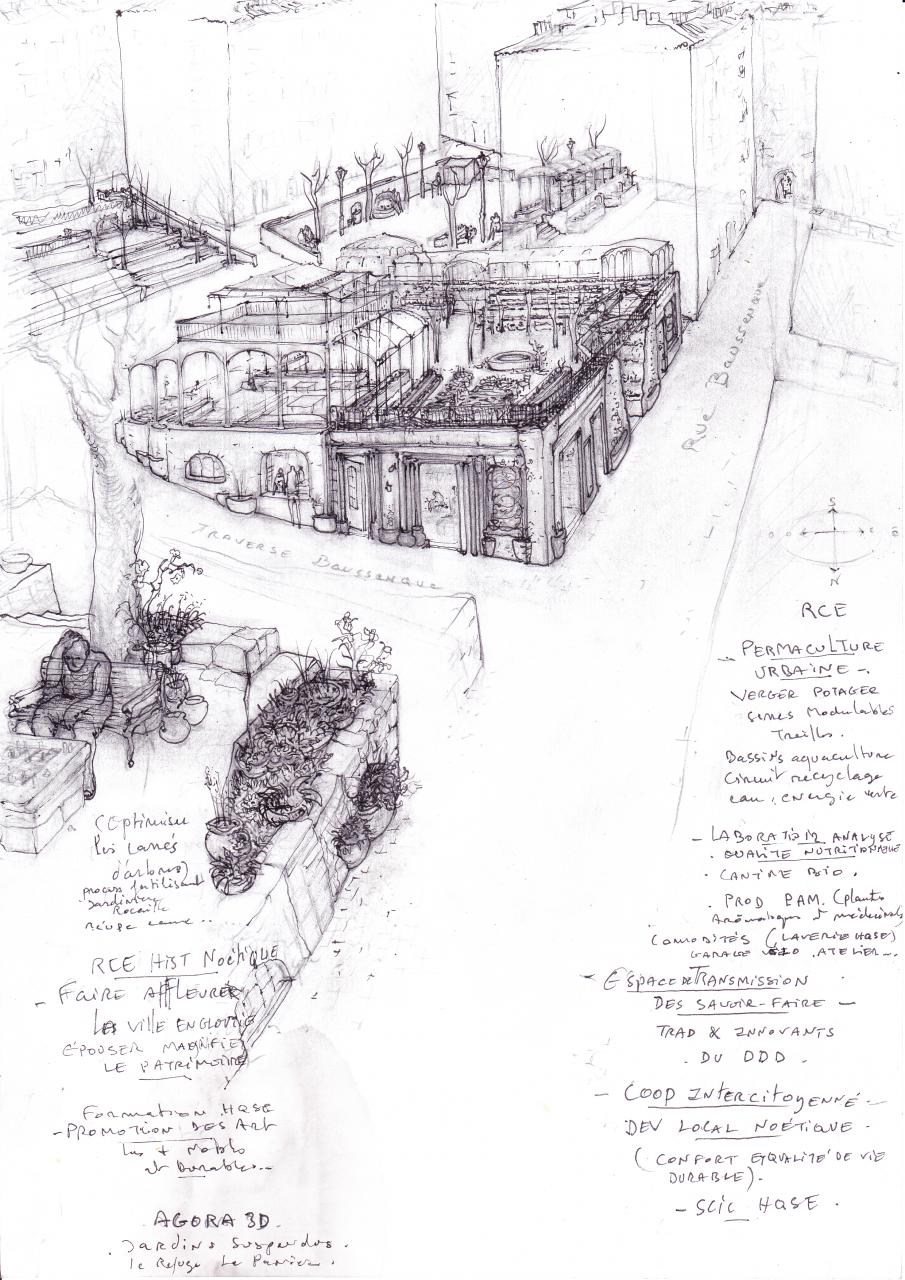 Rue Baussenque
TRAVERSE BAUSSENQUE
S
O E
N
RCE
- PERMACULTURE
URBAINE -
VERGER POTAGER
Serres Modulables
Treilles.
Bassins aquaculture
Circuit recyclage
eau, energie verte
- LABORATOIR ANALYSE
. QUALITE NUTRITIONNELLE
. CANTINE BIO .
. PROD PAM. (plantes
Aromatiques et médicinales
COMODITÉS (LAVERIE HQSE)
GARAGE VELO . ATELIER...
- ESPACE DE TRANSMISSION
DES SAVOIR-FAIRE -
TRAD & INNOVANTS
. DU DDD .
- COOP INTERCITOYENNE -
DEV LOCAL NOÉTIQUE .
(CONFORT ET QUALITÉ DE VIE
DURABLE).
- SCIC HQSE .
(Optimiser
les carrés
d'arbres)
process fertilisant
Jardinière
Rocaille
RCE HIST NOÉTIQUE
- FAIRE AFFLEURER
LA VILLE ENGLOUTIE
ÉPOUSER MAGNIFIER
LE PATRIMOINE
FORMATION HQSE
- PROMOTION DES ART
Les + Nobles
et Durables...
AGORA 3D.
. Jardins Suspendus .
le Refuge Le Panier .